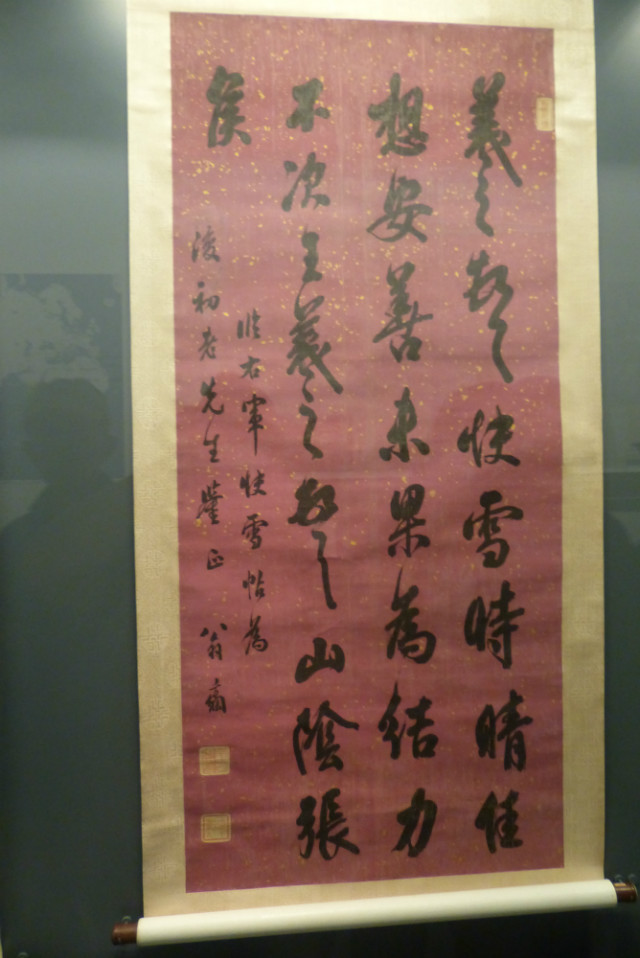 羲之頓首快雪時晴佳
想安善未果為結力
不次王羲之頓首山陰張
侯
臨右軍快雪帖為
初老先生鑒正 翁